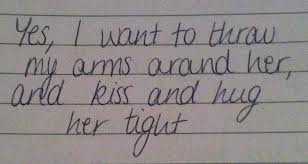 Yes, I want to throw
my arms around her,
and kiss and hug
her tight